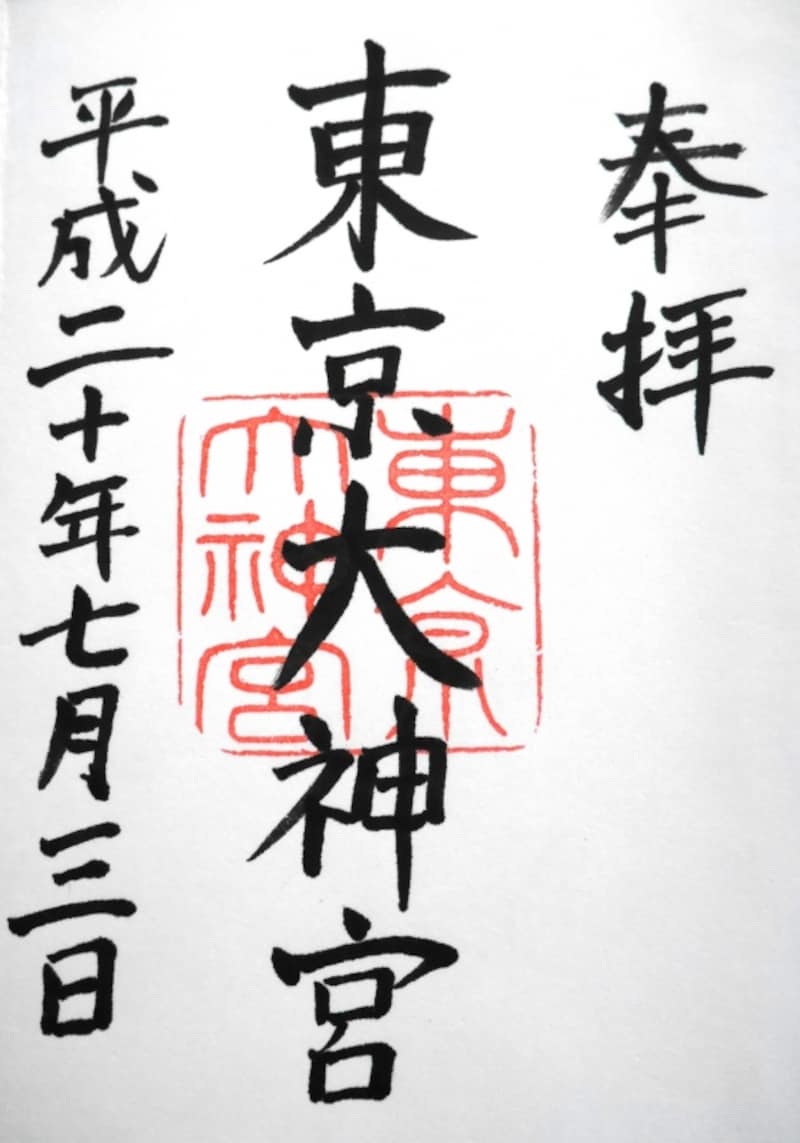 奉拝
東京大神宮
東京
大神宮
平成二十年七月三日